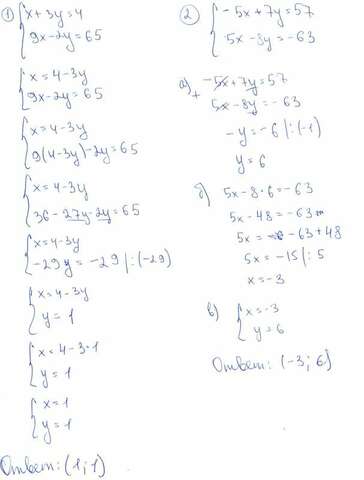 1) x+3y=4
9x-2y=65
x=4-3y
9x-2y=65
x=4-3y
9(4-3y)-2y=65
x=4-3y
36-27y-2y=65
x=4-3y
-29y=-29 |:(-29)
x=4-3y
y=1
x=4-3·1
y=1
x=1
y=1
Ответ: (1;1)
2) -5x+7y=57
5x-8y=-63
а) -5x+7y=57
+
5x-8y=-63
-y=-6 |:(-1)
y=6
б) 5x-8·6=-63
5x-48=-63
5x=-63+48
5x=-15 |:5
x=-3
в) x=-3
y=6
Ответ: (-3;6)